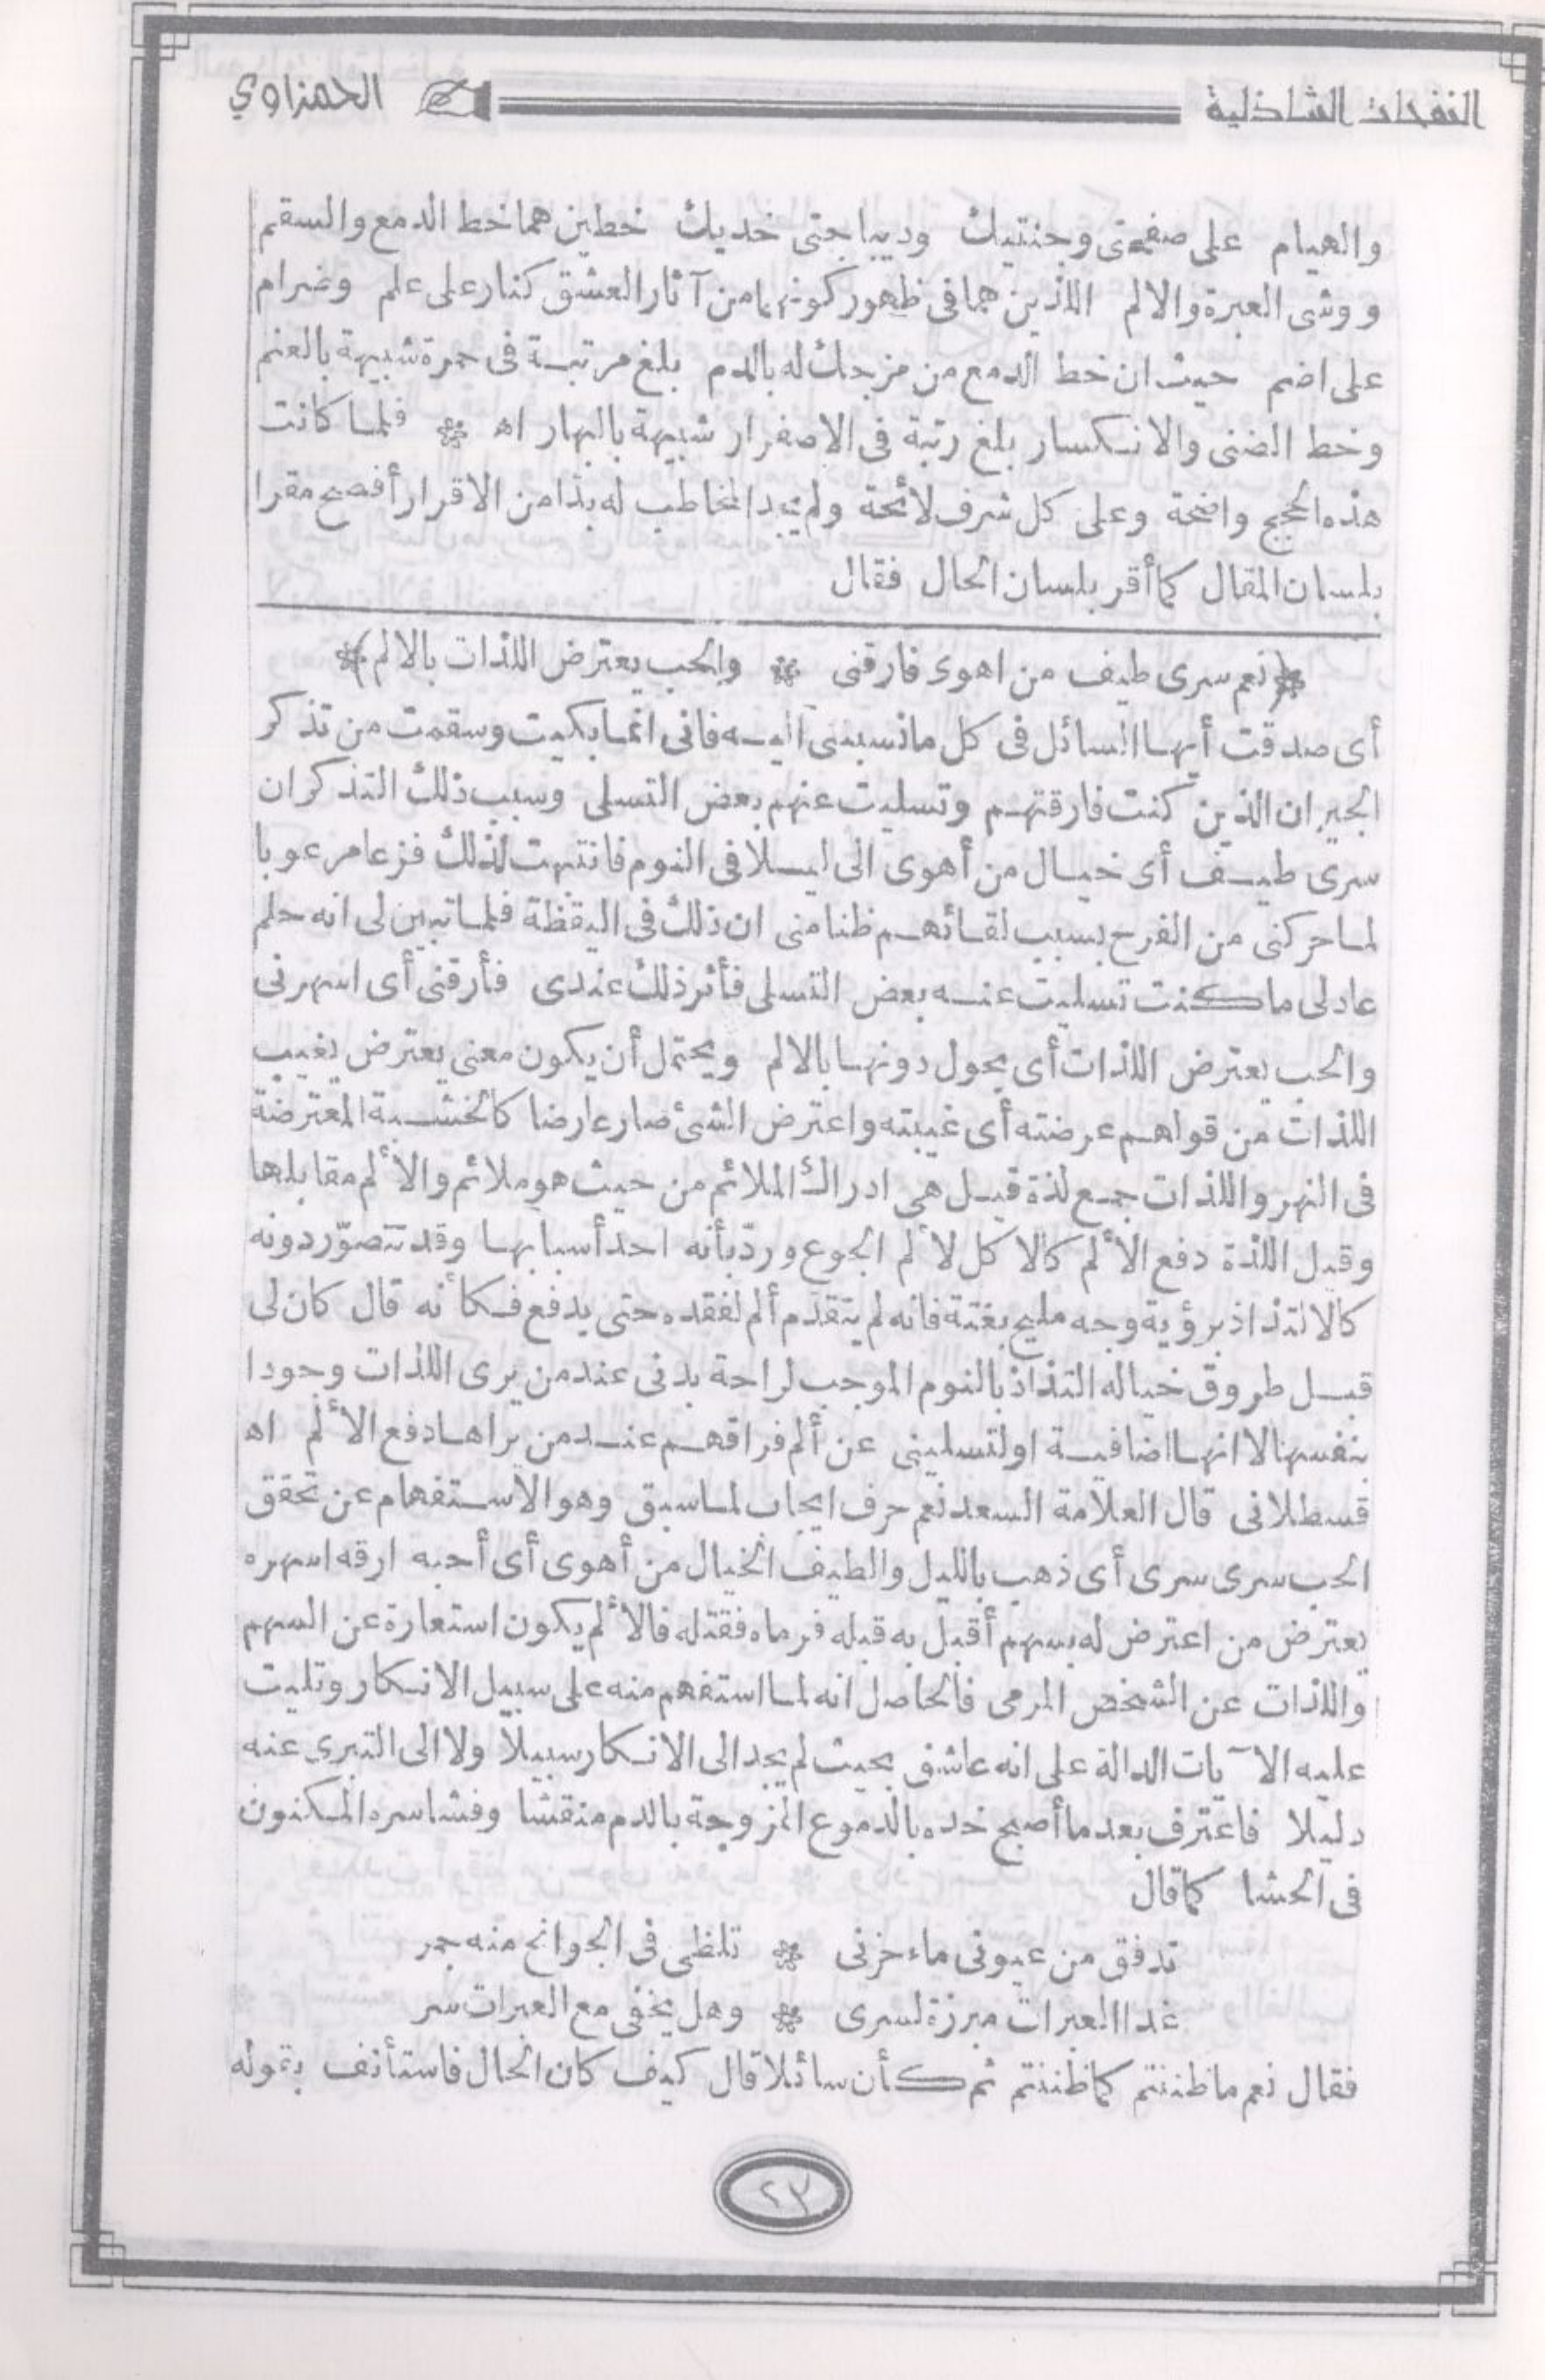 النفحات الشاذلية
الحمزاوي
والهيام على صفحتى وجنتيك وديباجتى خديك خطين هما خط الدمع والسقم
ووشى العبرة والالم اللذين هما فى ظهور كونهما من آثار العشق كنار على علم وضرام
على اضم حيث ان خط الدمع من مزجك له بالدم بلغ مرتبة فى حمرة شبيهة بالعنم
وخط الضنى والانكسار بلغ رتبة فى الاصفرار شبيهة بالبهار اه * فلما كانت
هذه الحجج واضحة وعلى كل شرف لائحة ولم يجد المخاطب له بدا من الاقرار أفصح مقرا
بلسان المقال كما أقر بلسان الحال فقال
*(نعم سرى طيف من اهوى فارقنى * والحب يعترض اللذات بالالم)*
أى صدقت أيها السائل فى كل ما نسبتنى اليه فانى انما بكيت وسقمت من تذكر
الجيران الذين كنت فارقتهم وتسليت عنهم بعض التسلى وسبب ذلك التذكر ان
سرى طيف أى خيال من أهوى الى ليلا فى النوم فانتبهت لذلك فزعا مرعوبا
لما حركنى من الفرح بسبب لقائهم ظنا منى ان ذلك فى اليقظة فلما تبين لى انه حلم
عاد لى ما كنت تسليت عنه بعض التسلى فأثر ذلك عندى فأرقنى أى اسهرنى
والحب يعترض اللذات أى يحول دونها بالالم ويحتمل أن يكون معنى يعترض يغيب
اللذات من قولهم عرضته أى غيبته واعترض الشئ صار عارضا كالخشبة المعترضة
فى النهر واللذات جمع لذة قيل هى ادراك الملائم من حيث هو ملائم والألم مقابلها
وقيل اللذة دفع الألم كالاكل لألم الجوع وردّ بأنه احد أسبابها وقد تتصوّر دونه
كالالتذاذ برؤية وجه مليح بغتة فانه لم يتقدم ألم لفقده حتى يدفع فكأنه قال كان لى
قبل طروق خياله التذاذ بالنوم الموجب لراحة بدنى عند من يرى اللذات وجودا
بنفسها لا انها اضافية او لتسلينى عن ألم فراقهم عند من يراها دفع الألم اه
قسطلانى قال العلامة السعد نعم حرف ايجاب لما سبق وهو الاستفهام عن تحقق
الحب سرى سرى أى ذهب بالليل والطيف الخيال من أهوى أى أحبه ارقه اسهره
يعترض من اعترض له بسهم أقبل به قبله فرماه فقتله فالألم يكون استعارة عن السهم
واللذات عن الشخص المرمى فالحاصل انه لما استفهم منه على سبيل الانكار وتليت
عليه الآيات الدالة على انه عاشق بحيث لم يجد الى الانكار سبيلا ولا الى التبرى عنه
دليلا فاعترف بعد ما أصبح خده بالدموع الممزوجة بالدم منقشا وفشا سره المكنون
فى الحشا كما قال
تدفق من عيونى ماء حزنى * تلظى فى الجوانح منه جمر
غدا العبرات مبرزة لسرى * وهل يخفى مع العبرات سر
فقال نعم ما ظننتم كما ظننتم ثم كأن سائلا قال كيف كان الحال فاستأنف بقوله
٢٣